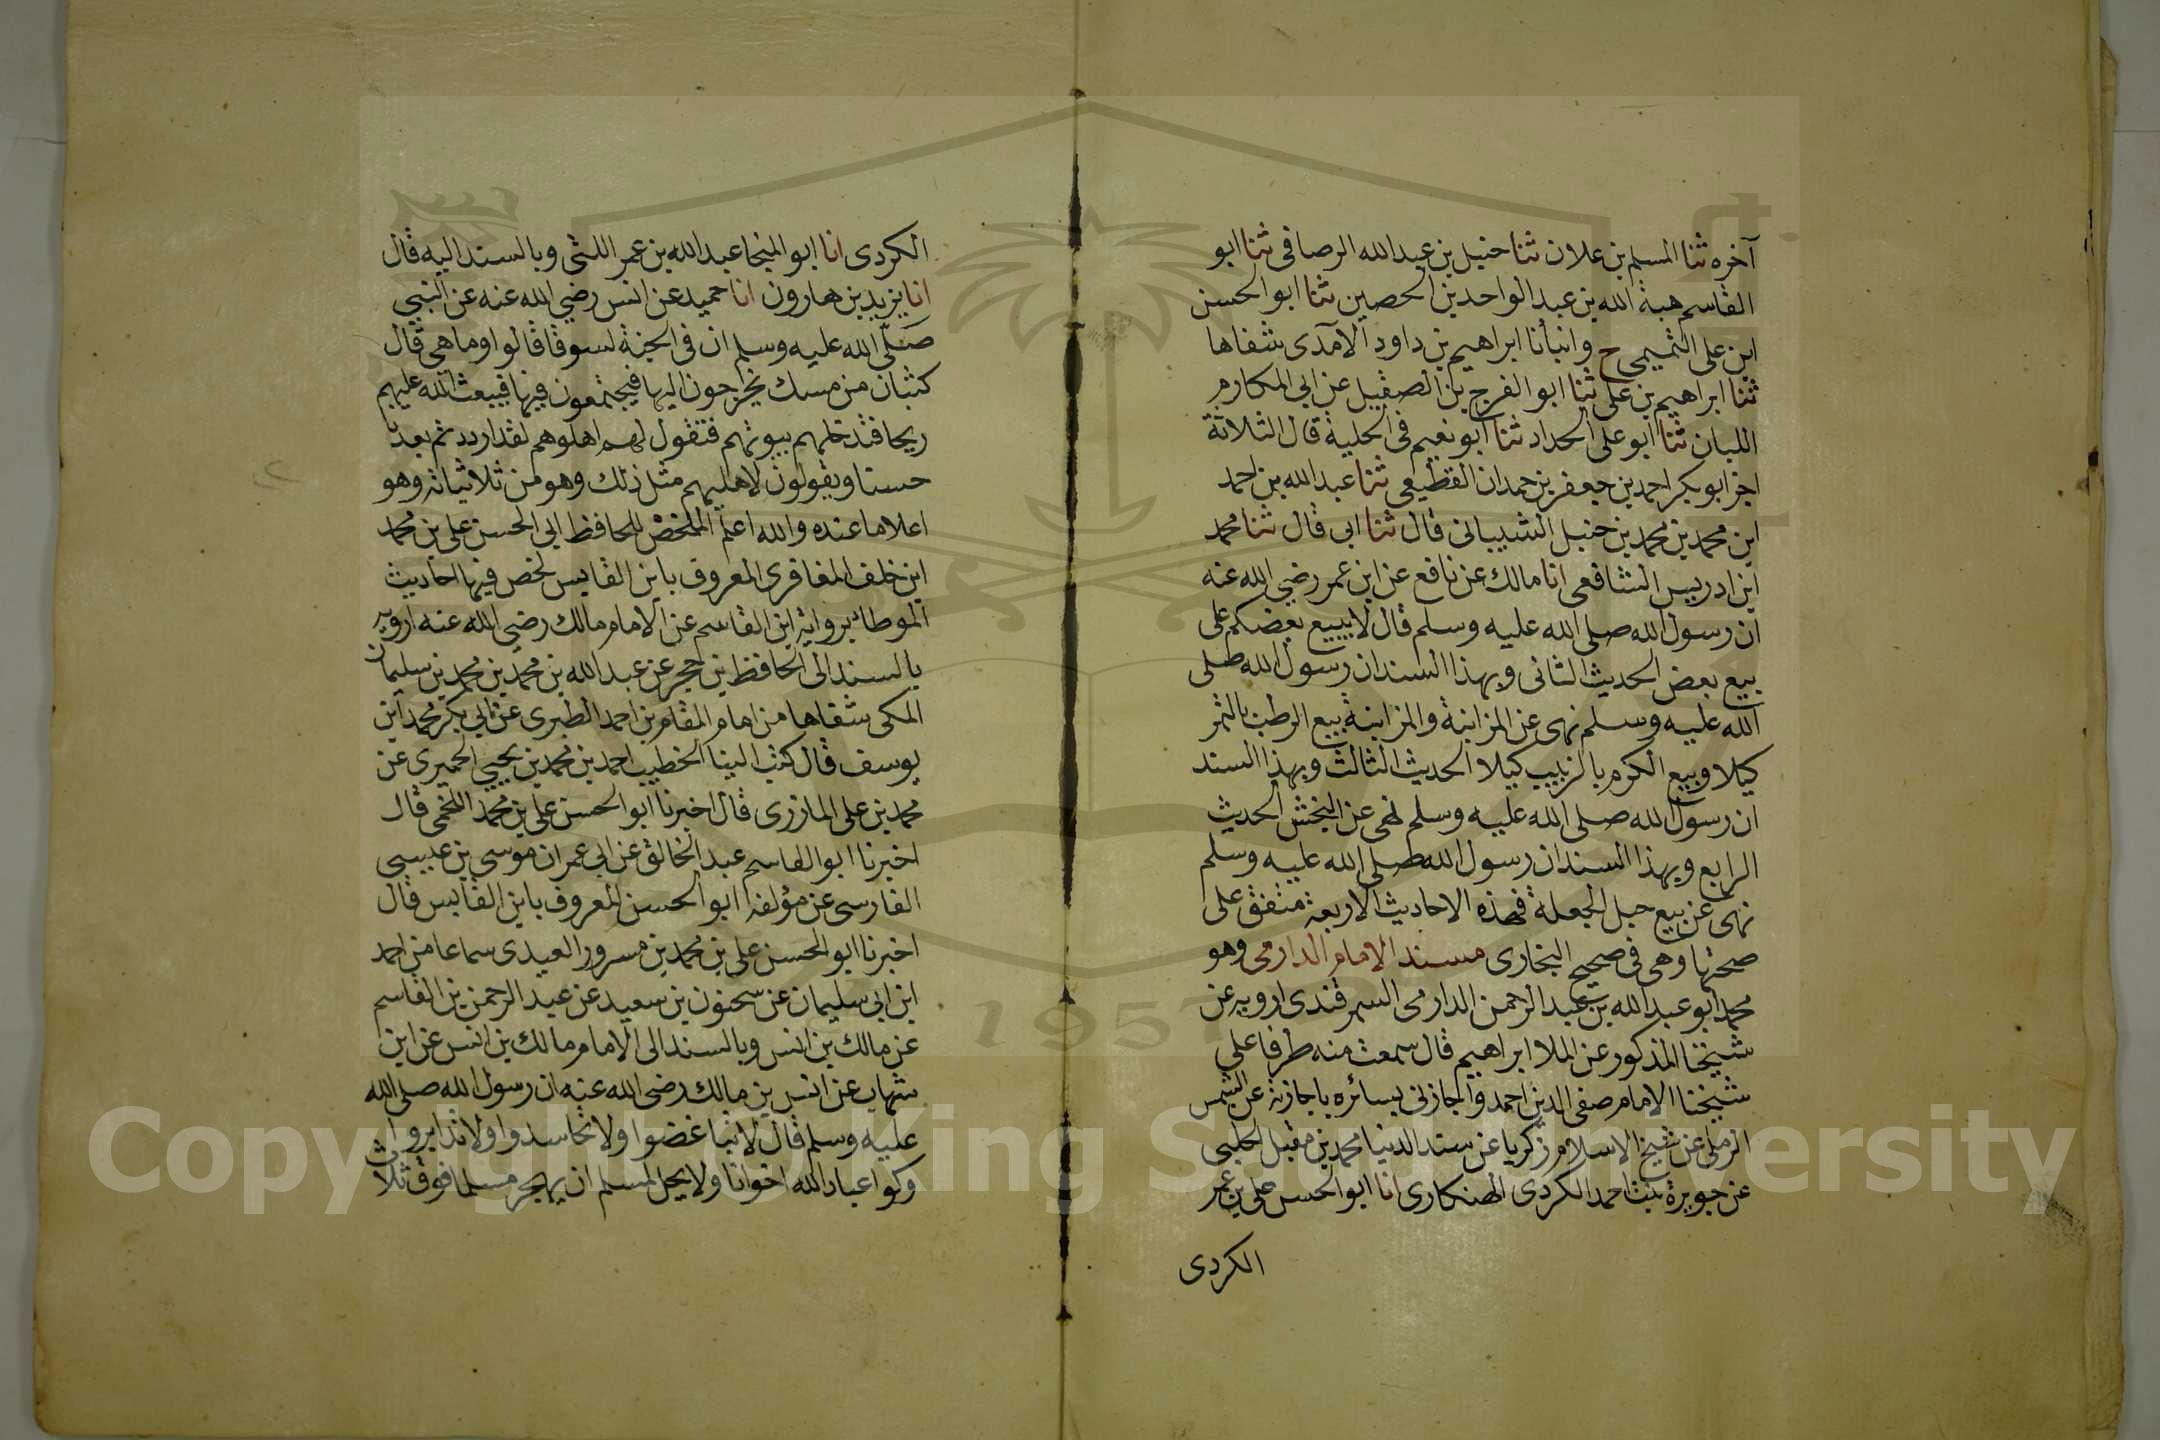 آخره ثنا المسلم بن علان ثنا حنبل بن عبد الله الرصافى ثنا ابو
القاسم هبة الله بن عبد الواحد بن الحصين ثنا ابو الحسن
ابن على التميمى ح وانبأنا ابراهيم بن داود الآمدى شفاها
ثنا ابراهيم بن على ثنا ابو الفرج بن الصقيل عن ابى المكارم
اللبان ثنا ابو على الحداد ثنا ابو نعيم فى الحلية قال الثلاثة
اجز ابو بكر احمد بن جعفر بن حمدان القطيعى ثنا عبد الله بن احمد
ابن محمد بن محمد بن حنبل الشيبانى قال ثنا ابى قال ثنا محمد
ابن ادريس الشافعى انا مالك عن نافع عن ابن عمر رضى الله عنه
ان رسول الله صلى الله عليه وسلم قال لا يبيع بعضكم على
بيع بعض الحديث الثانى وبهذا السند ان رسول الله صلى
الله عليه وسلم نهى عن المزابنة والمزابنة بيع الرطب بالتمر
كيلا وبيع الكرم بالزبيب كيلا الحديث الثالث وبهذا السند
ان رسول الله صلى الله عليه وسلم نهى عن النجش الحديث
الرابع وبهذا السند ان رسول الله صلى الله عليه وسلم
نهى عن بيع حبل الجعلة فهذه الاحاديث الاربعة متفق على
صحتها وهى فى صحيح البخارى مسند الامام الدارمى وهو
محمد ابو عبد الله بن عبد الرحمن الدارمى السمرقندى ارويه عن
شيخنا المذكور عن الملا ابراهيم قال سمعت منه طرفا على
شيخنا الامام صفى الدين احمد واجازنى بسائره باجازته عن الشمس
الرملى عن شيخ الاسلام زكريا عن سند الدنيا محمد بن مقبل الحلبى
عن جويرة بنت احمد الكردى الهنكارى انا ابو الحسن على بن عمر
الكردى
الكردى انا ابو المنجا عبد الله بن عمر اللتى وبالسند اليه قال
انا يزيد بن هارون انا حميد عن انس رضى الله عنه عن النبي
صلى الله عليه وسلم ان فى الجنة لسوقا قالوا وما هى قال
كثبان من مسك يخرجون اليها فيجتمعون فيها فيبعث الله عليهم
ريحا فتدخلهم بيوتهم فتقول لهم اهلوهم لقد ازددتم بعدنا
حسنا ويقولون لاهليهم مثل ذلك وهو من ثلاثياته وهو
اعلا ما عنده والله اعلم الملخص للحافظ ابى الحسن على بن محمد
ابن خلف المغافرى المعروف بابن القابس لخص فيها احاديث
الموطا برواية ابن القاسم عن الامام مالك رضى الله عنه ارويه
بالسند الى الحافظ بن حجر عن عبد الله بن محمد بن محمد بن سليمان
المكى شفاها من امام المقام بن احمد الطبرى عن ابى بكر محمد ابن
يوسف قال كتب الينا الخطيب احمد بن محمد بن يحيى الحميرى عن
محمد بن على المازرى قال اخبرنا ابو الحسن على بن محمد اللخمى قال
اخبرنا ابو القاسم عبد الخالق عن ابى عمران موسى بن عيسى
الفارسى عن مؤلفه ابو الحسن المعروف بابن القابس قال
اخبرنا ابو الحسن على بن محمد بن مسرور العبدى سماعا من احمد
ابن ابى سليمان عن سحنون بن سعيد عن عبد الرحمن بن القاسم
عن مالك بن انس وبالسند الى الامام مالك بن انس عن ابن
شهاب عن انس بن مالك رضى الله عنه ان رسول الله صلى الله
عليه وسلم قال لا تباغضوا ولا تحاسدوا ولا تدابروا
وكونوا عباد الله اخوانا ولا يحل لمسلم ان يهجر مسلما فوق ثلاث
1957
Copyright © King Saud University